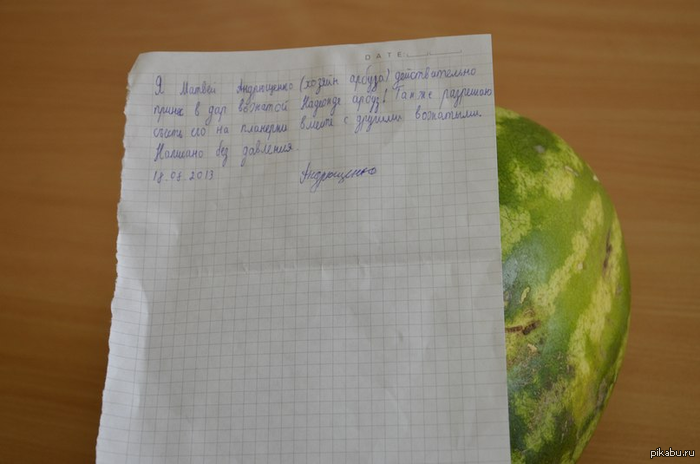 DATE
Я Матвей Андрющенко (хозяин арбуза) действительно
принес в дар вожатой Надежде арбуз! Также разрешаю
съесть его на планерки вместе с другими вожатыми.
Написано без давления.
18.06.2013 Андрющенко
pikabu.ru